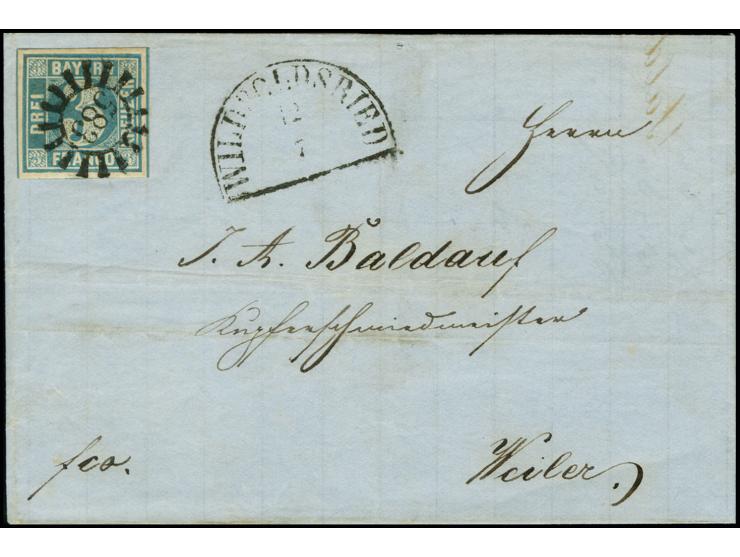 BAYERN
DREI
FRANCO
WILDPOLDSRIED
12
7
Herrn
J. A. Baldauf
Kupferschmiedmeister
fco.
Weiler.